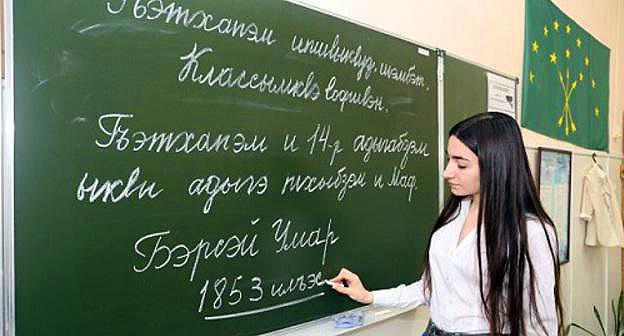 Гъэтхапэм шэмбэт.
КлассымкIэ IофшIэн.
Гъэтхапэм и 14-р адыгабзэм
ыкIи адыгэ тхыбзэм и Маф.
Бэрсэй Умар
1853 илъэс